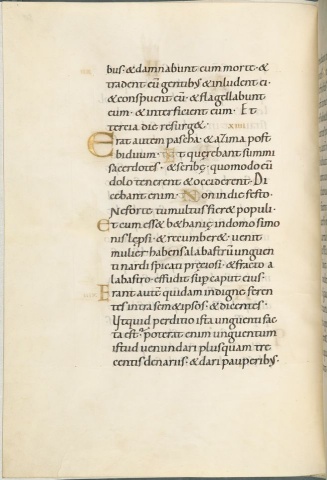 bus · & damnabunt cum morte · &
tradent eū gentibꝫ & inludent ei ·
& conspuent eū · & flagellabunt
eum · & interficient eum · Et
tercia die resurg& · xiiii
Erat autem pascha · & azima post
biduum · Et querebant summi
sacerdotes · & scribę · quomodo eū
dolo tenerent & occiderent · Di
cebant enim · Non in die festo ·
Ne forte tumultus fier& populi ·
Et cum ess& b&hanię in domo simo
nis leprosi · & recumber& · uenit
mulier habens alabastrū unguen
ti nardi spicati preciosi · & fracto a
labastro · effudit sup caput eius ·
Erant autē quidam indigne feren
tes intra sem&ipsos · & dicentes ·
Ut quid perditio ista unguenti fac
ta est · poterat enim unguentum
istud uenundari plusquam tre
centis denariis · & dari pauperibꝫ ·